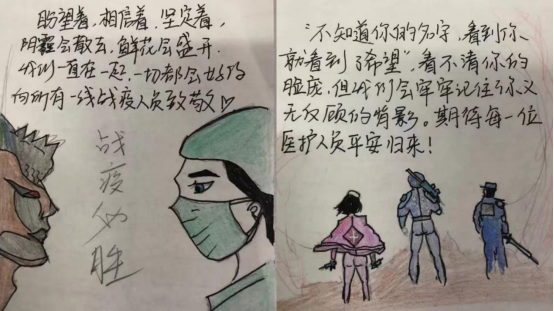 盼望着,相信着,坚定着,
阴霾会散去,鲜花会盛开
我们一直在一起,一切都会好的
向所有一线战疫人员致敬♡
战
疫
必
胜
“不知道你的名字,看到你
就看到了希望”,看不清你的
脸庞,但我们会牢牢记住你义
无反顾的背影。期待每一位
医护人员平安归来!